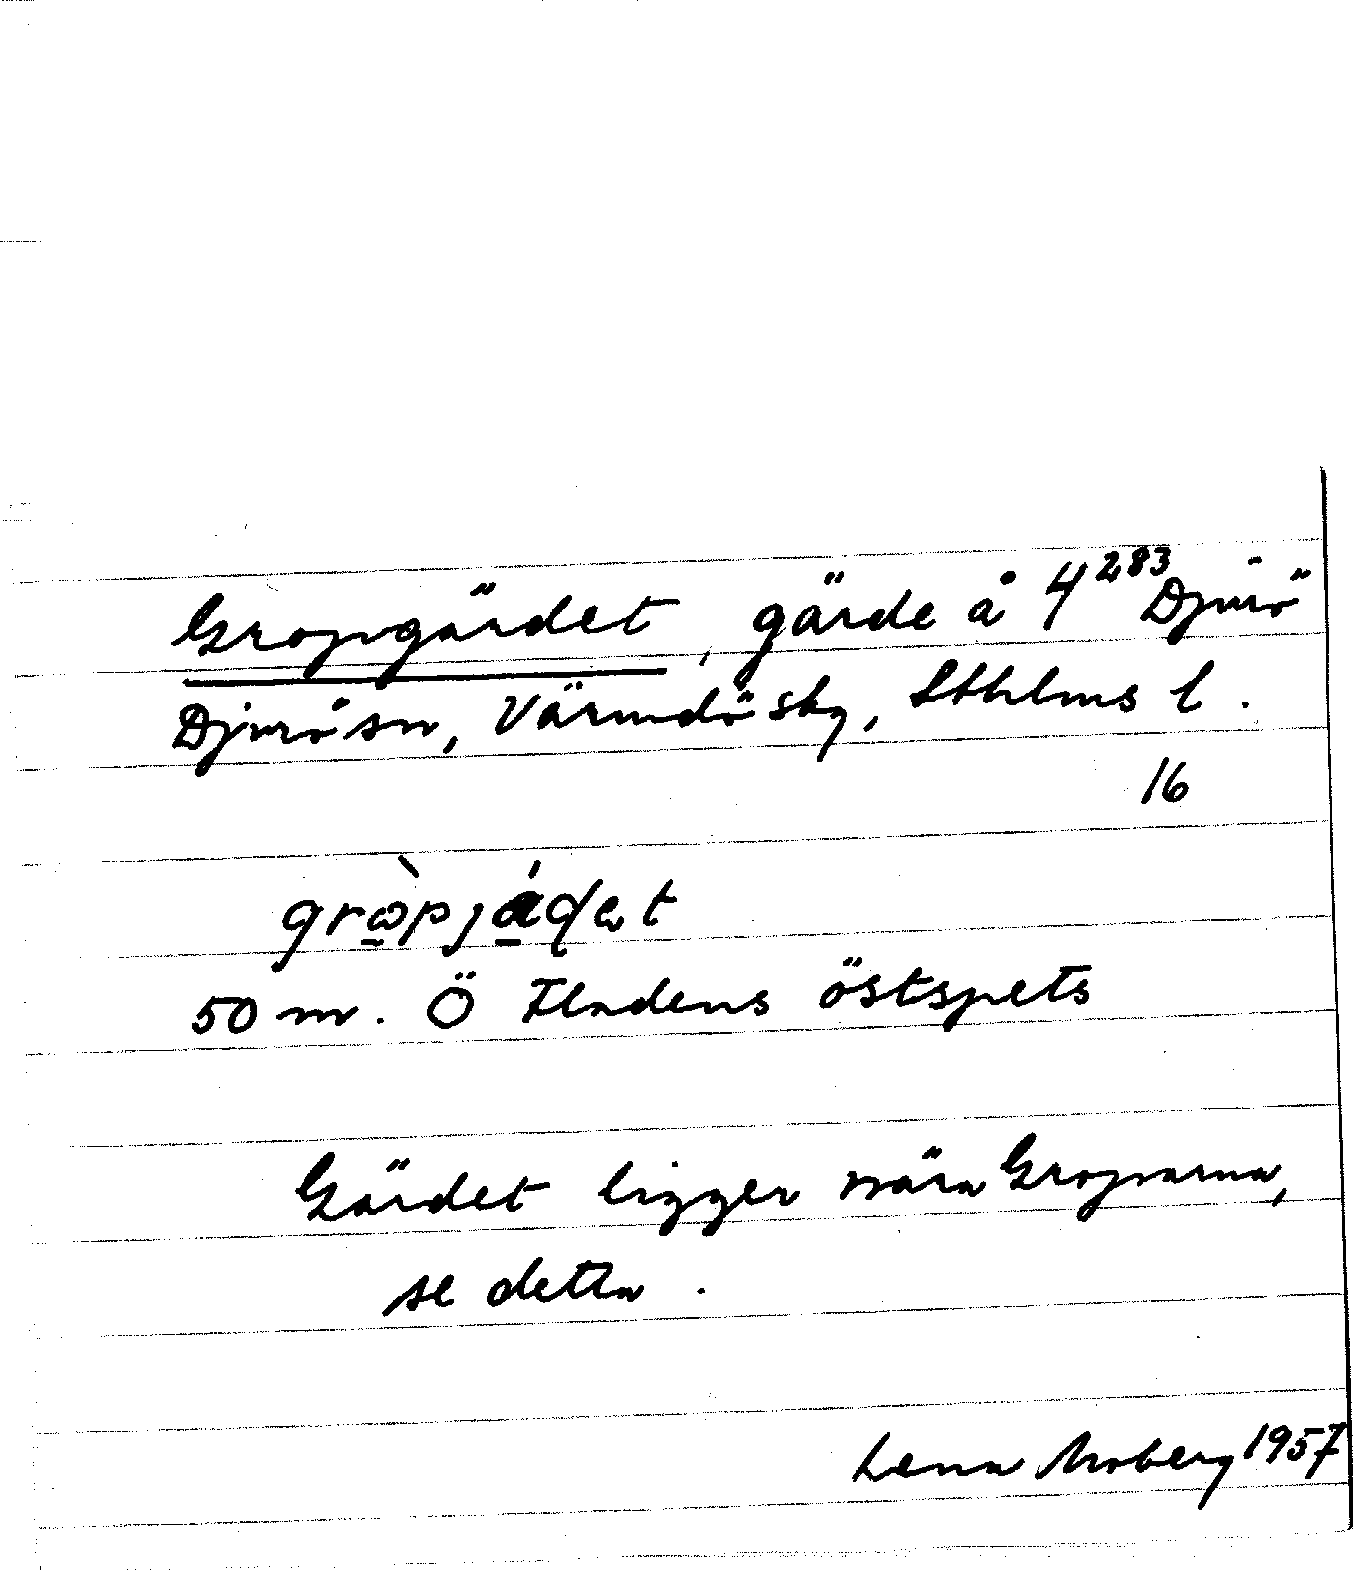 Gropgärdet, gärde å 4²⁸³ Djurö
Djurö sn, Värmdö skg, Sthlms l.
16
grò̱pjá̱ɖət
50 m. Ö Fladens östspets
Gärdet ligger nära Groparna,
se detta.
Lena Moberg 1957